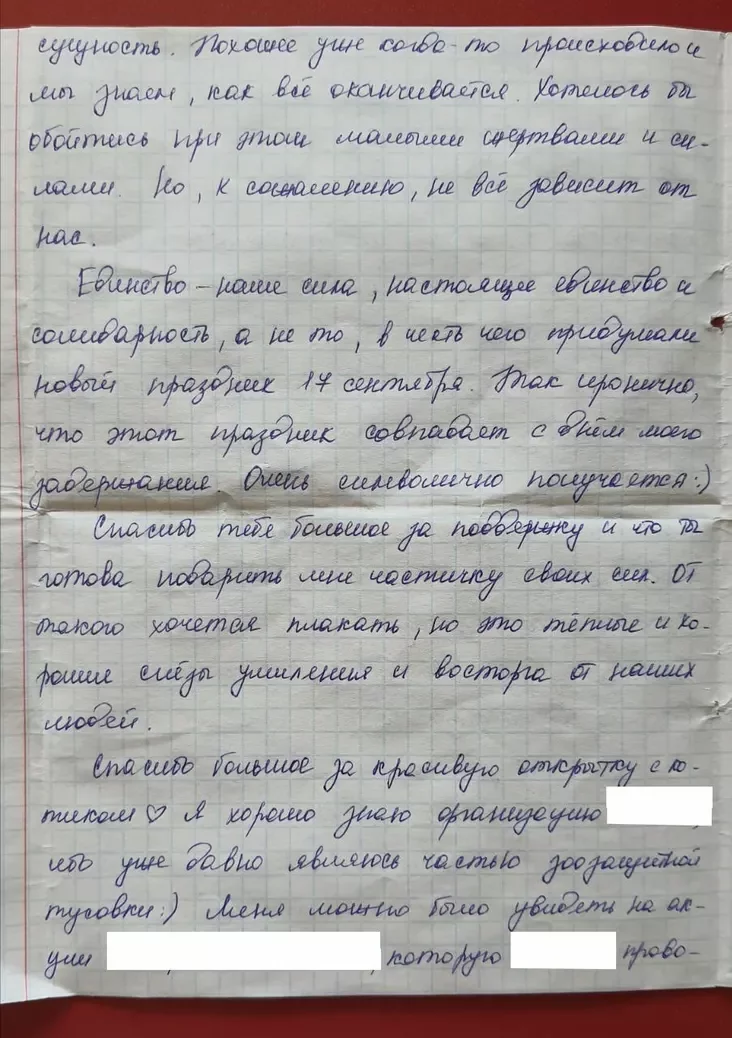 сущность. Похожее уже когда-то происходило и
мы знаем, как всё оканчивается. Хотелось бы
обойтись при этом малыми жертвами и си-
лами. Но, к сожалению, не всё зависит от
нас.
Единство – наше сила, настоящее единство и
солидарность, а не то, в честь чего придумали
новый праздник 17 сентября. Так иронично,
что этот праздник совпадает с днём моего
задержания. Очень символично получается:)
Спасибо тебе большое за поддержку и что ты
готова подарить мне частичку своих сил. От
такого хочется плакать, но это тёплые и хо-
рошие слёзы умиления и восторга от наших
людей.
Спасибо большое за красивую открытку с ко-
тиком ♡ Я хорошо знаю организацию ,
ибо уже давно являюсь частью зоозащитной
тусовки:) Меня можно было увидеть на ак-
ции , которую прово-